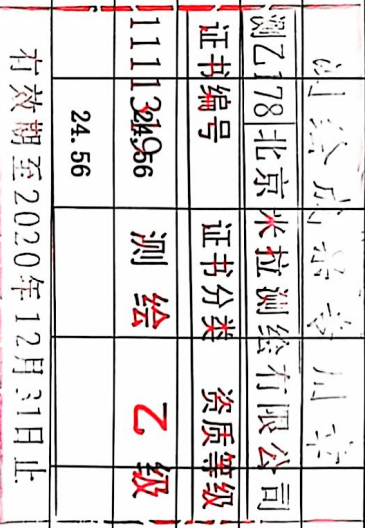 测绘成果专用章
测乙178 北京米拉测绘有限公司
证书编号 证书分类 资质等级
24.56 测绘 乙级
24.56
有效期至2020年12月31日止